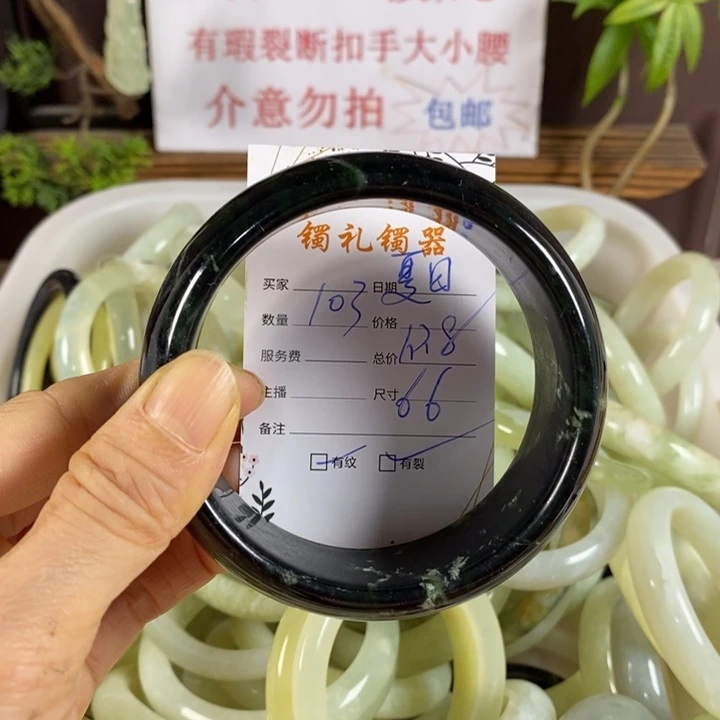 有瑕裂断扣手大小腰
介意勿拍 包邮
镯礼镯器
买家 日期 夏日
数量 103 价格
服务费 总价 128
主播 尺寸 66
备注
有纹 有裂